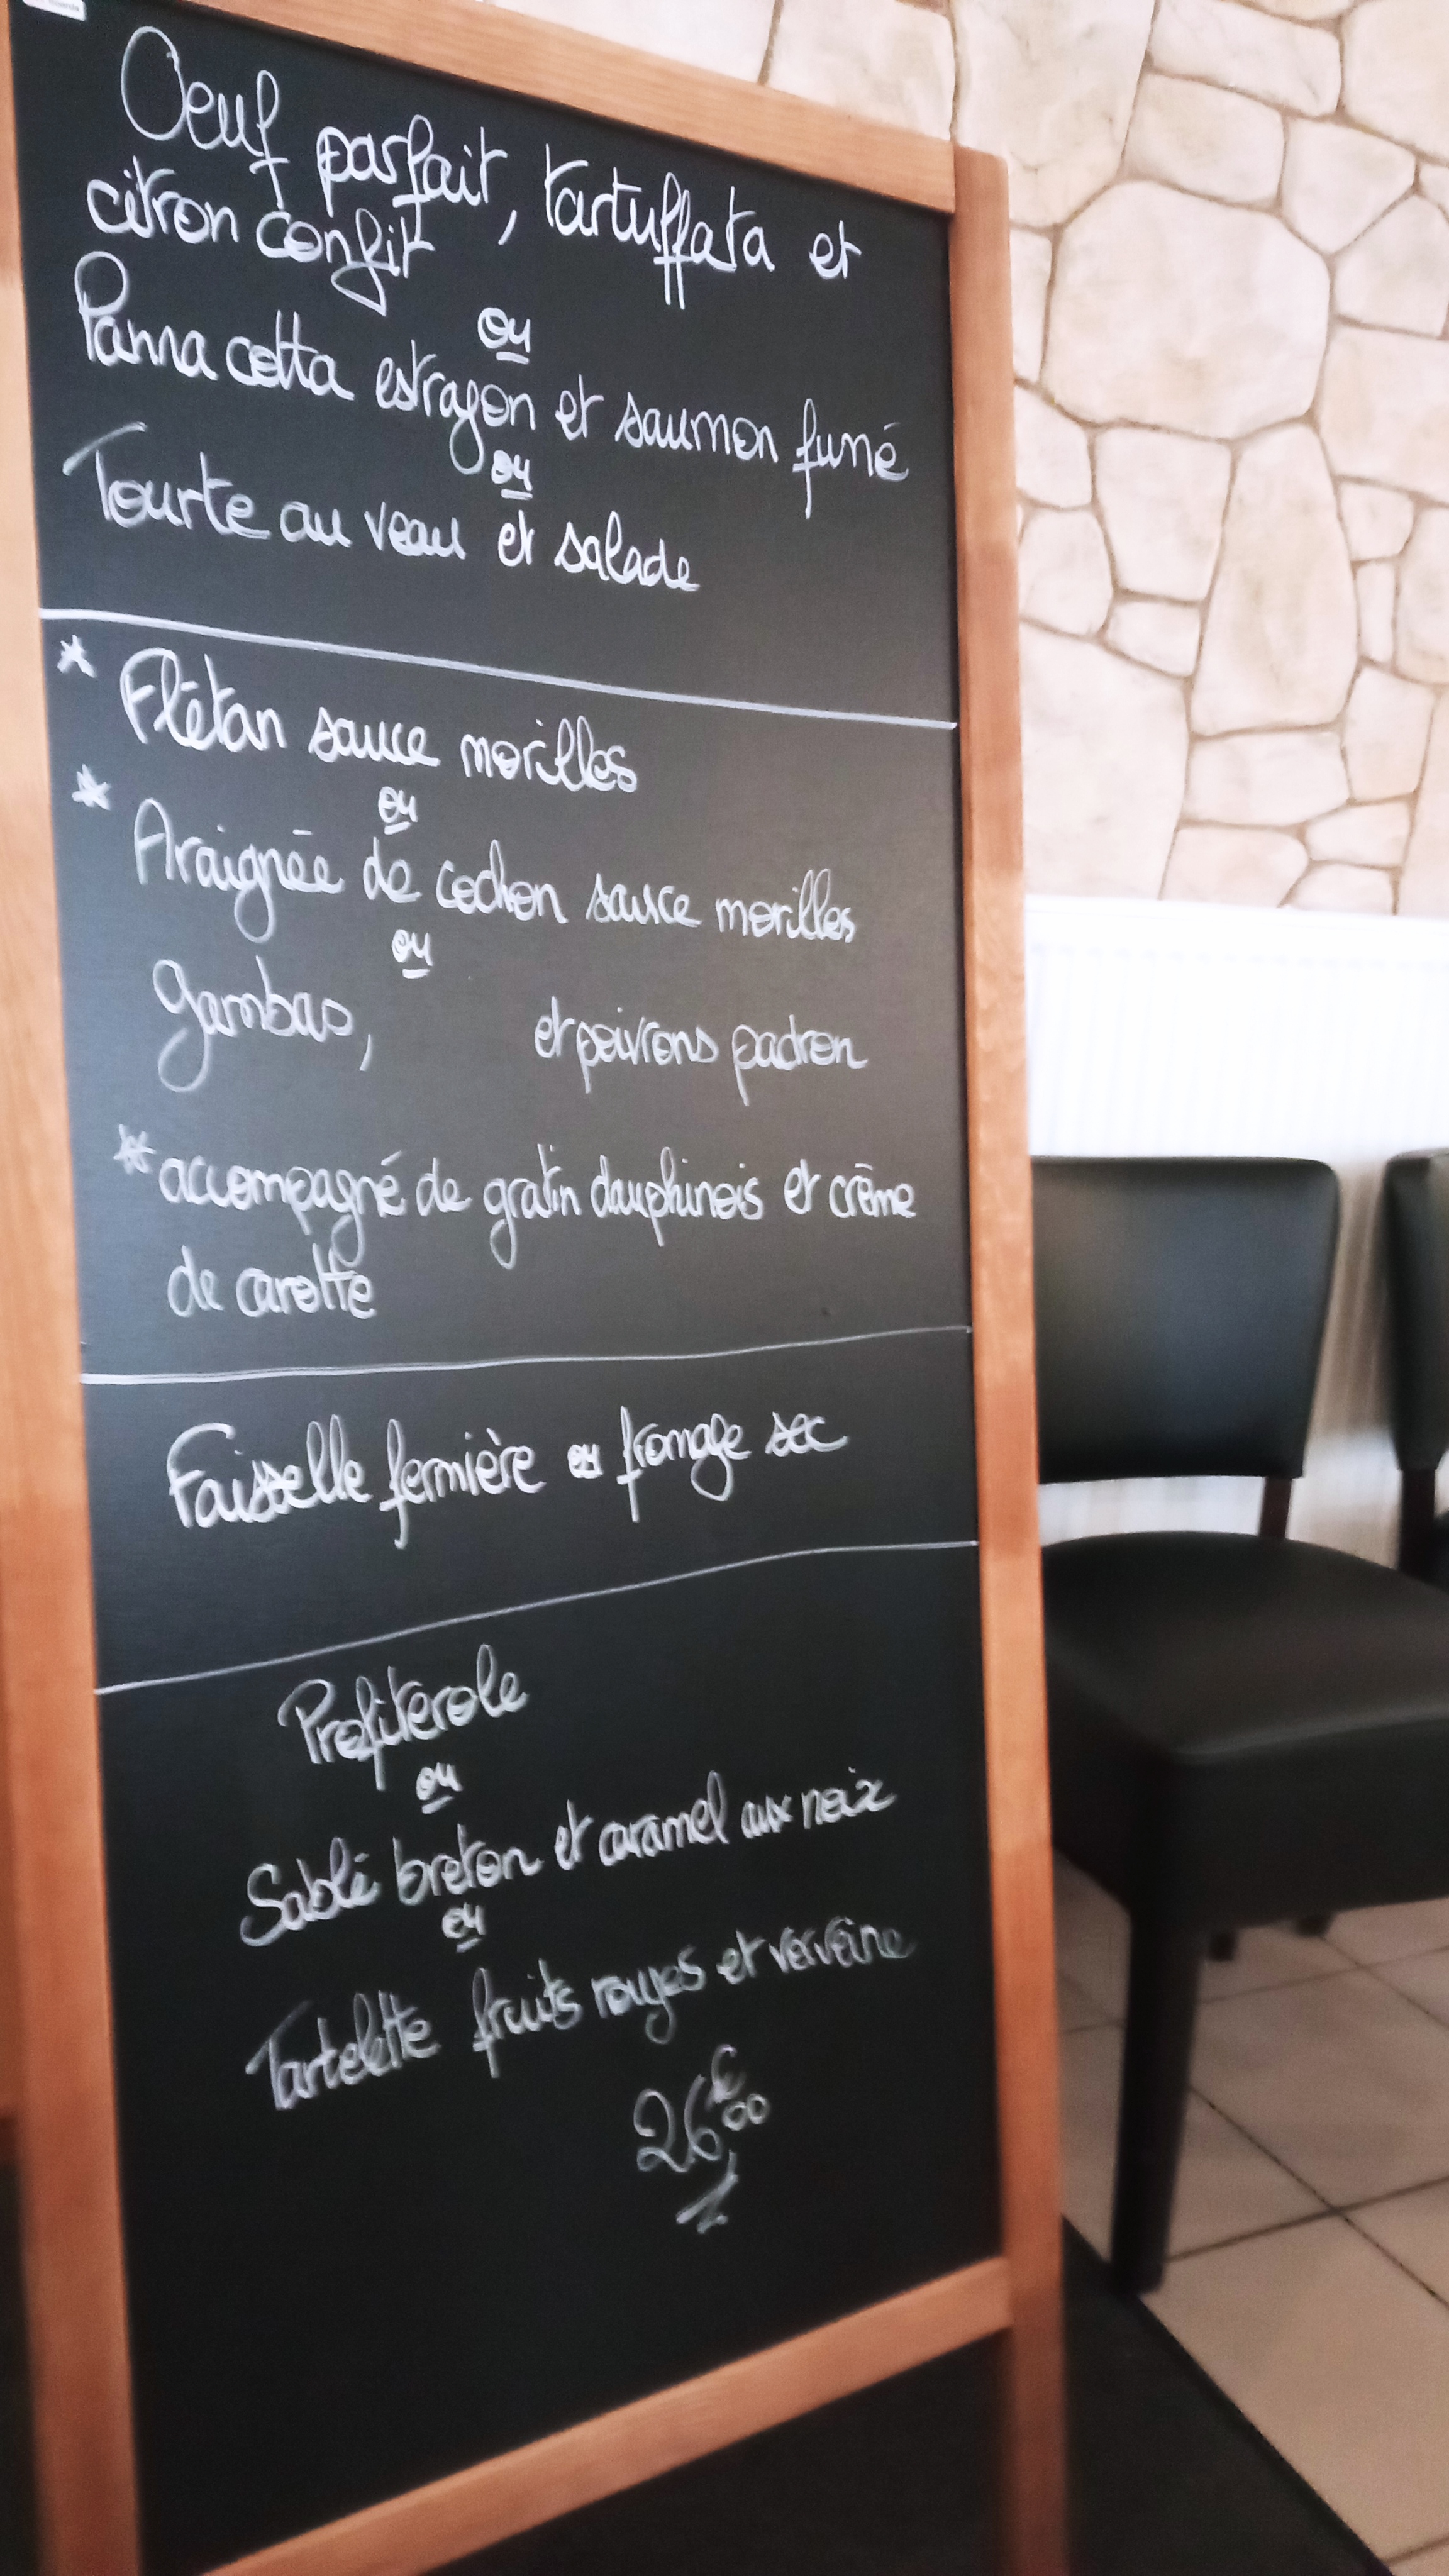 Oeuf parfait, tartuffata et
citron confit
ou
Panna cotta estragon et saumon fumé
ou
Tourte au veau et salade
* Flétan sauce morilles
ou
* Araignée de cochon sauce morilles
ou
gambas, et poivrons padron
* accompagné de gratin dauphinois et crème
de carotte
Faisselle fermière ou fromage sec
Profiterole
ou
Sablé breton et caramel aux noix
ou
Tartelette fruits rouges et verveine
26€00